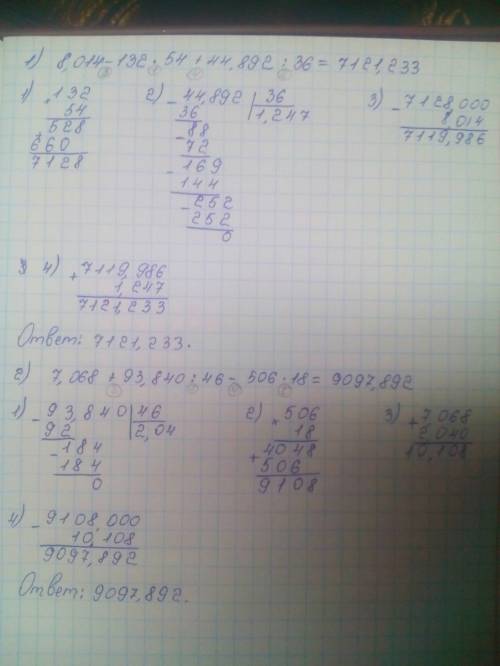 1) 8,014 - 132 · 54 + 44,892 : 36 = 7121,233
1) × 132
54
528
+ 660
7128
2) - 44,892 | 36
36 | 1,247
- 88
72
- 169
144
- 252
252
0
3) - 7128,000
8,014
7119,986
4) + 7119,986
1,247
7121,233
Ответ: 7121,233.
2) 7,068 + 93,840 : 46 - 506 · 18 = 9097,892
1) - 93,840 | 46
92 | 2,04
- 184
184
0
2) × 506
18
+ 4048
506
9108
3) + 7,068
2,040
10,108
4) - 9108,000
10,108
9097,892
Ответ: 9097,892.